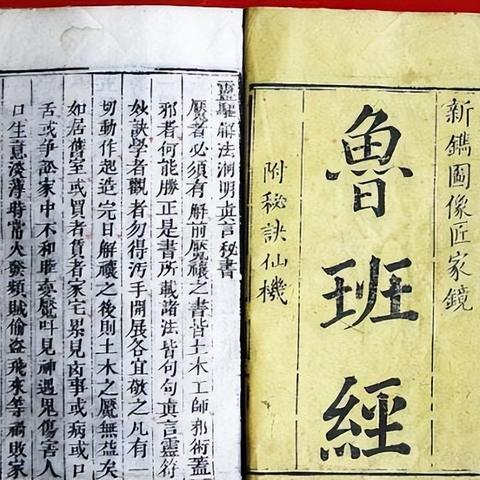 新鐫圖像匠家鏡
魯班經
附秘訣仙機
靈驅解法洞明真言秘書
魘者必須有解前魘禳之書皆土木工師邪術蓋
邪者何能勝正是書所載諸法皆句句真言靈符
妙訣學者觀者勿得汚手開展各宜敬之凡有一
切動作起造完日解禳之後則土木之魘無益矣
如居舊室或買者賃者家宅累見凶事或病或口
舌或爭訟家中不和睡夢魘叫見神遇鬼傷害人
口生意淡薄時常火發頻賊偷盜飛來等禍敗家